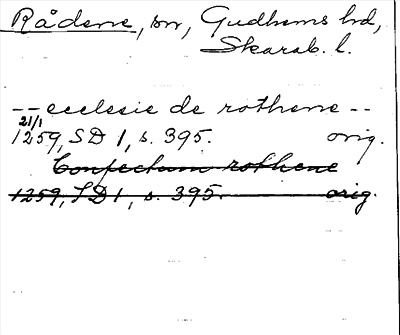 Rådene, sn, Gudhems hd,
Skarab. l.
-- ecclesie de rothene --
21/1
1259, SD 1, s. 395. orig.
Confectum rothene
1259, SD 1, s. 395. orig.